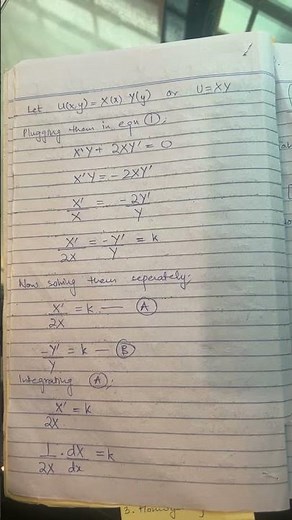 Let U(x,y) = X(x) Y(y) or U = XY
Plugging them in eqn ①,
X'Y + 2XY' = 0
X'Y = -2XY'
X'/X = -2Y'/Y
X'/2X = -Y'/Y = k
Now solving them seperately:
X'/2X = k — Ⓐ
-Y'/Y = k — Ⓑ
Integrating Ⓐ:
X'/2X = k
1/2X · dX/dx = k
3. Homog